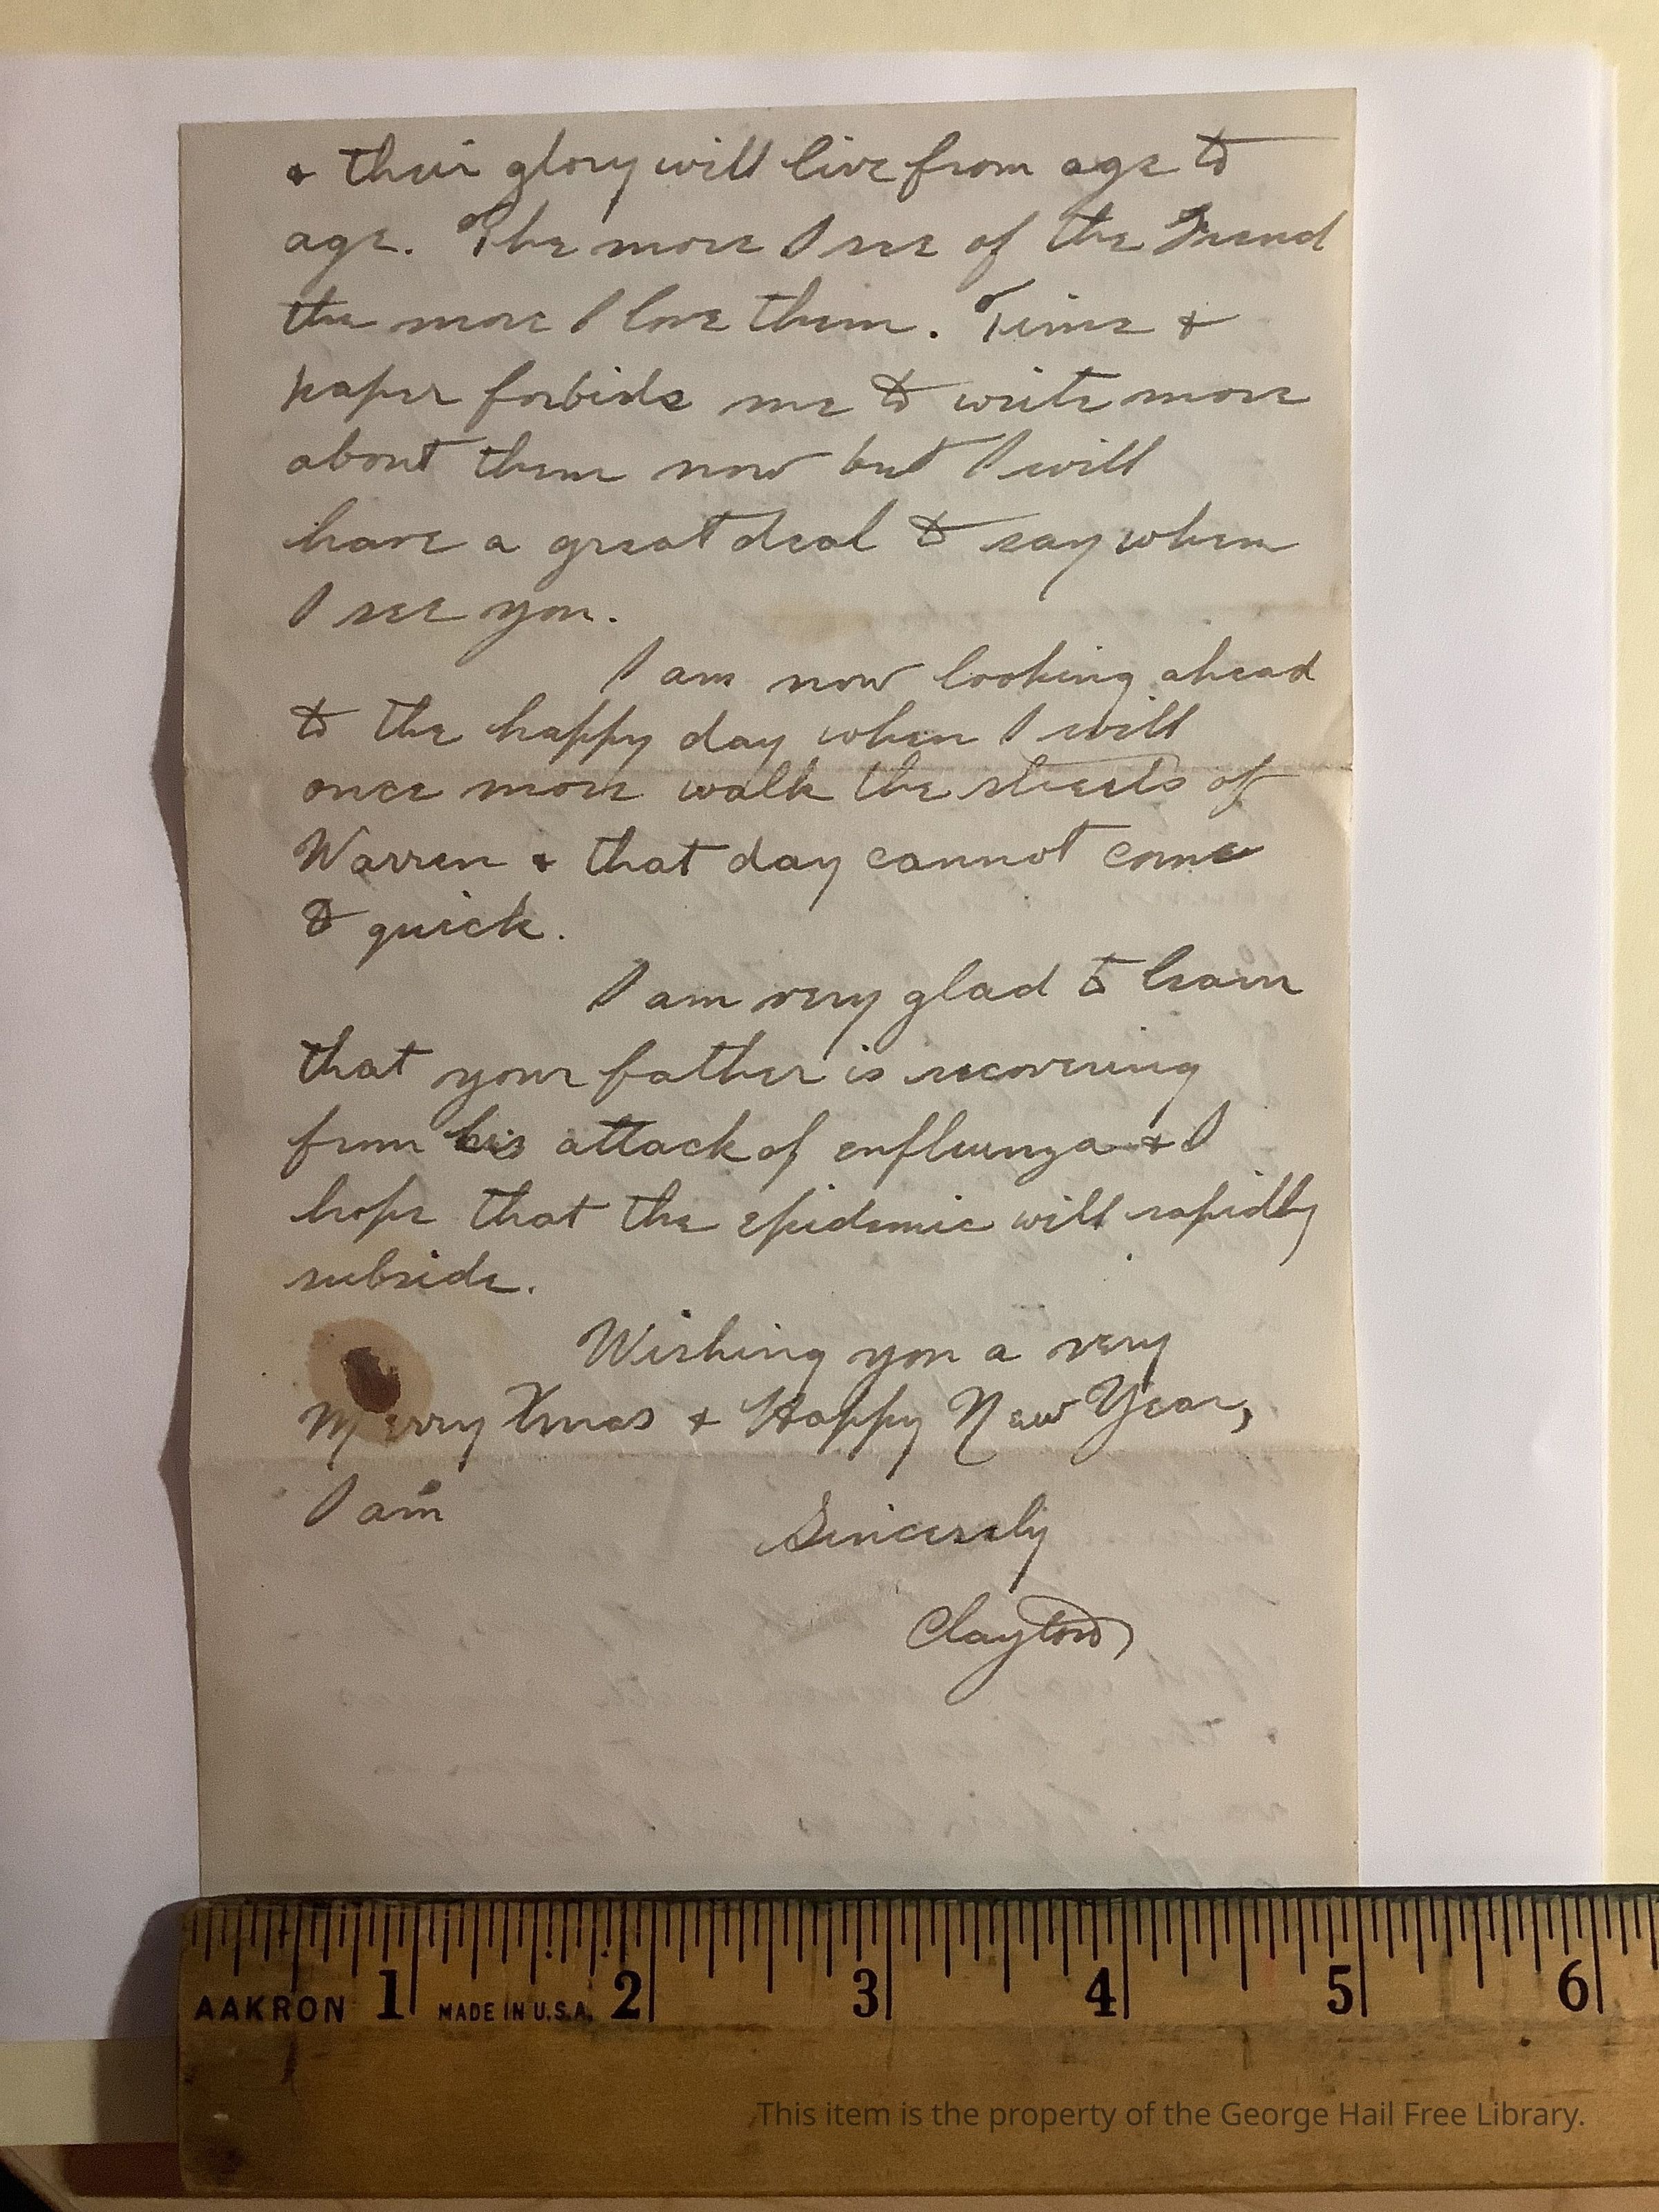 & their glory will live from age to
age. The more I see of the
the more I love them. Time &
paper forbids me to write more
about them now but I will
have a great deal to say when
I see you.
I am now looking ahead
to the happy day when I will
once more walk the streets of
Warren & that day cannot come
to quick.
I am very glad to learn
that your father is recovering
from his attack of enfluenza & I
hope that the epidemic will rapidly
subside.
Wishing you a very
Merry Xmas & Happy New Year,
I am
Sincerely
Clayton
AAKRON 1 MADE IN U.S.A. 2 3 4 5 6
This item is the property of the George Hail Free Library.